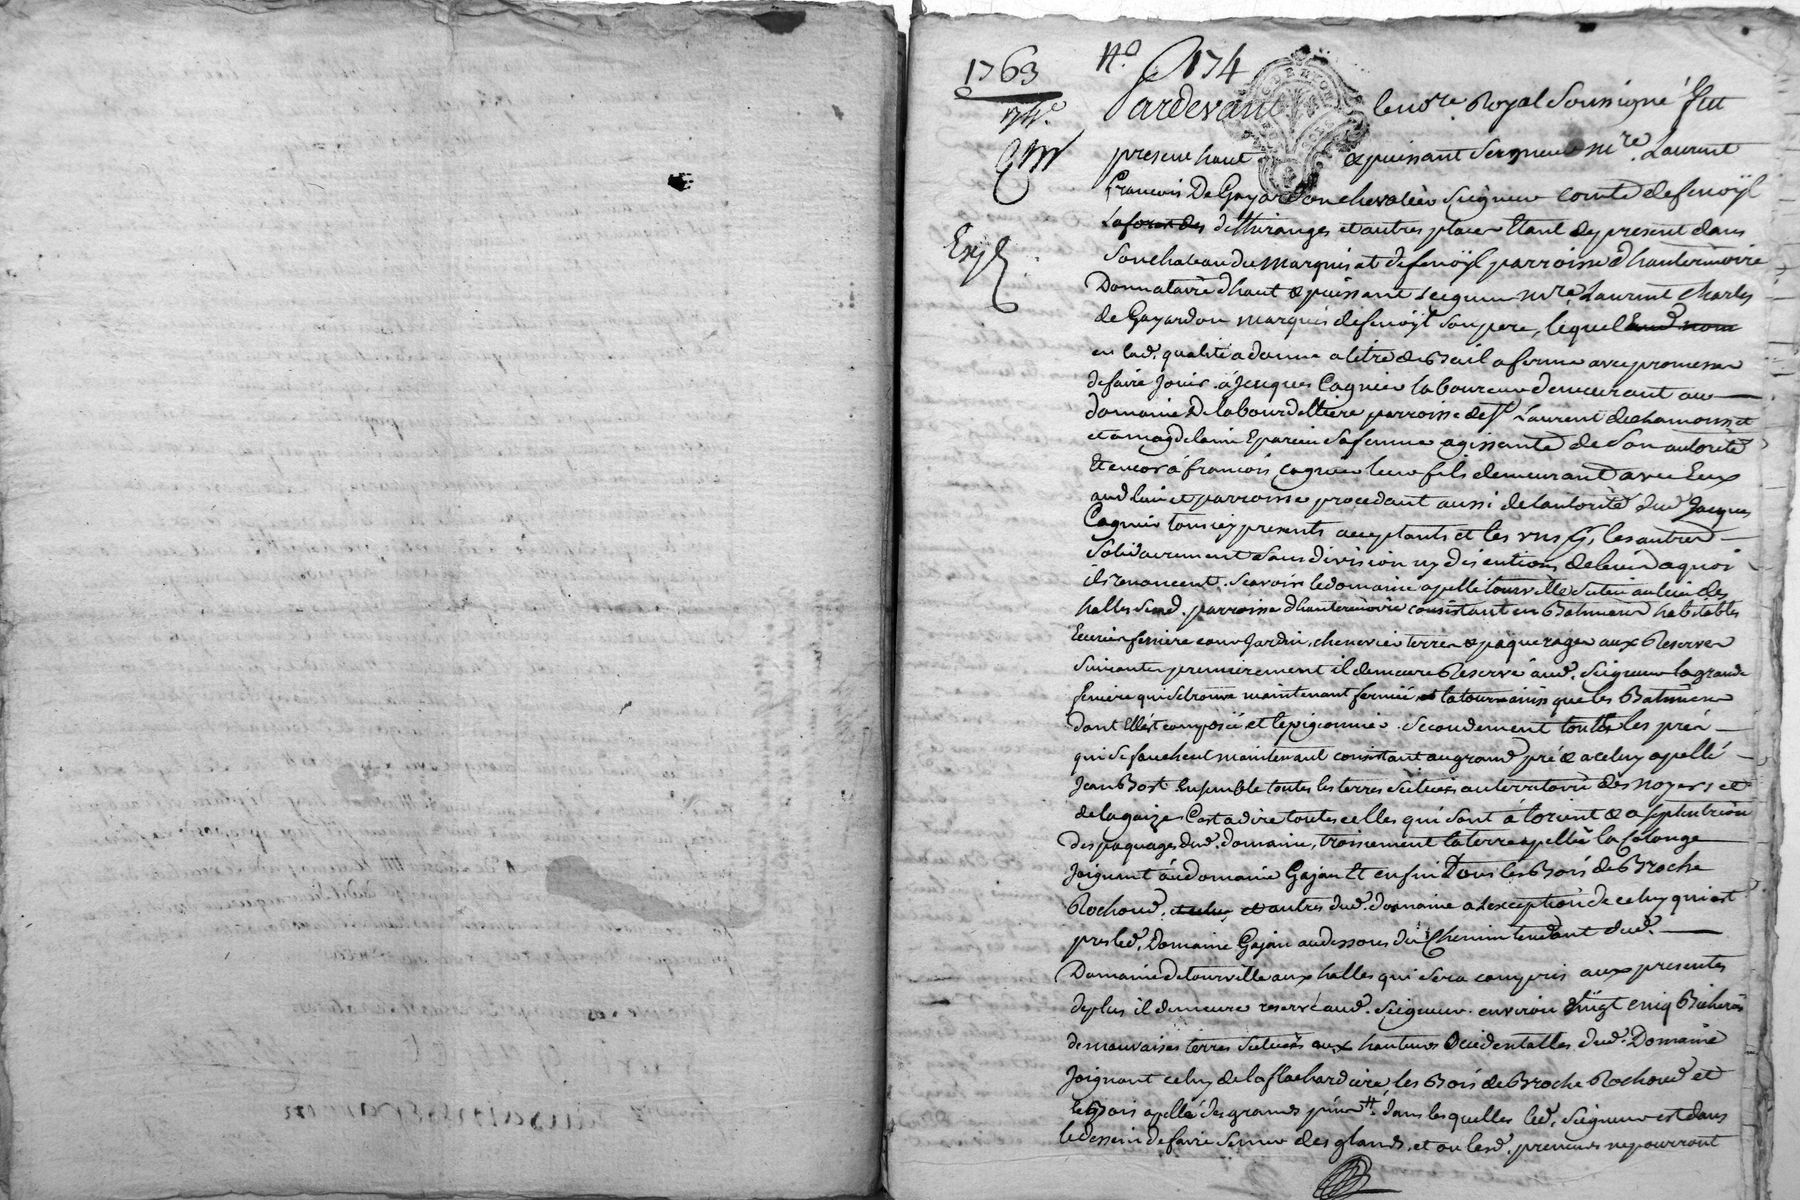 1763
N.o 174
74.e
Exp
Pardevant le no.re Royal Soussigné fut
present haut & puissant Seigneur m.re Laurent
francois De Gayardon chevalier Seigneur comte defenoÿl
Laforest des dethuranges et autres places Etant de present dans
Son chateau du marquisat defenoÿl parroisse d'hauterivoire
Donnataire d'haut & puissant Seigneur m.re Laurent Charles
de Gayardon marquis defenoÿl Son pere, lequel aud nom
en lad. qualité a donné a titre de Bail a ferme avec promesse
de faire Jouir. á Jacques Cagnier laboureur demeurant au
domaine De labourdelliere parroisse de St Laurent dechamousset
et a magdelaine Eparcieu Sa femme agissante de Son autorité
Et encor á francois Cagnier leur fils demeurant avec Eux
aud lieu et parroisse procedant aussi de lautorité dud Jacques
Cagnier tous icy presents acceptants et les uns p.r les autres
Solidairement Sans division ny discution de bien a quoi
ils renoncent. Scavoir le domaine apellé tourville Scitué au lieu des
halles Sus d. parroisse d'hauterivoire consistant en Batiments habitables
Ecurie feniere cour Jardin, chenevier terres & paquerages aux Reserves
Suivantes premierement il demeure Reservé aud. Seigneur la grande
feniere qui se trouve maintenant fermée, et la tour ainsi que les Batiments
dont Elle est composée et le pigeonnier. Secondement toutes les prés
qui Se fauchent maintenant consistant au grand pré & a celuy apellé
Jean Bost Ensemble toutes les terres Scituées au territoire des noyers et
de lagaize C'est a dire toutes celles qui Sont á lorient & a Septentrion
des paquages dud. domaine, troisiement la terre apellée la Colonge
Joignant au domaine Gajan Et enfin Tous les Bois de Broche
Rochoud, et autres dud. domaine a lexception de celuy qui est
pres led. Domaine Gajan audessous du Chemin tendant dud.
Domaine detourville aux halles qui Sera compris aux presentes
deplus il demeure reservé aud. Seigneur. environ Vingt cinq Bicherées
demauvaises terres Scituées aux hauteurs Occidentalles dud. Domaine
Joignant celuy de la flachardiere les Bois de Broche Rochoud et
le Bois apellé des grands dans lesquelles led. Seigneur est dans
le dessein de faire Semer des glands, et ou lesd. preneurs ne pourront